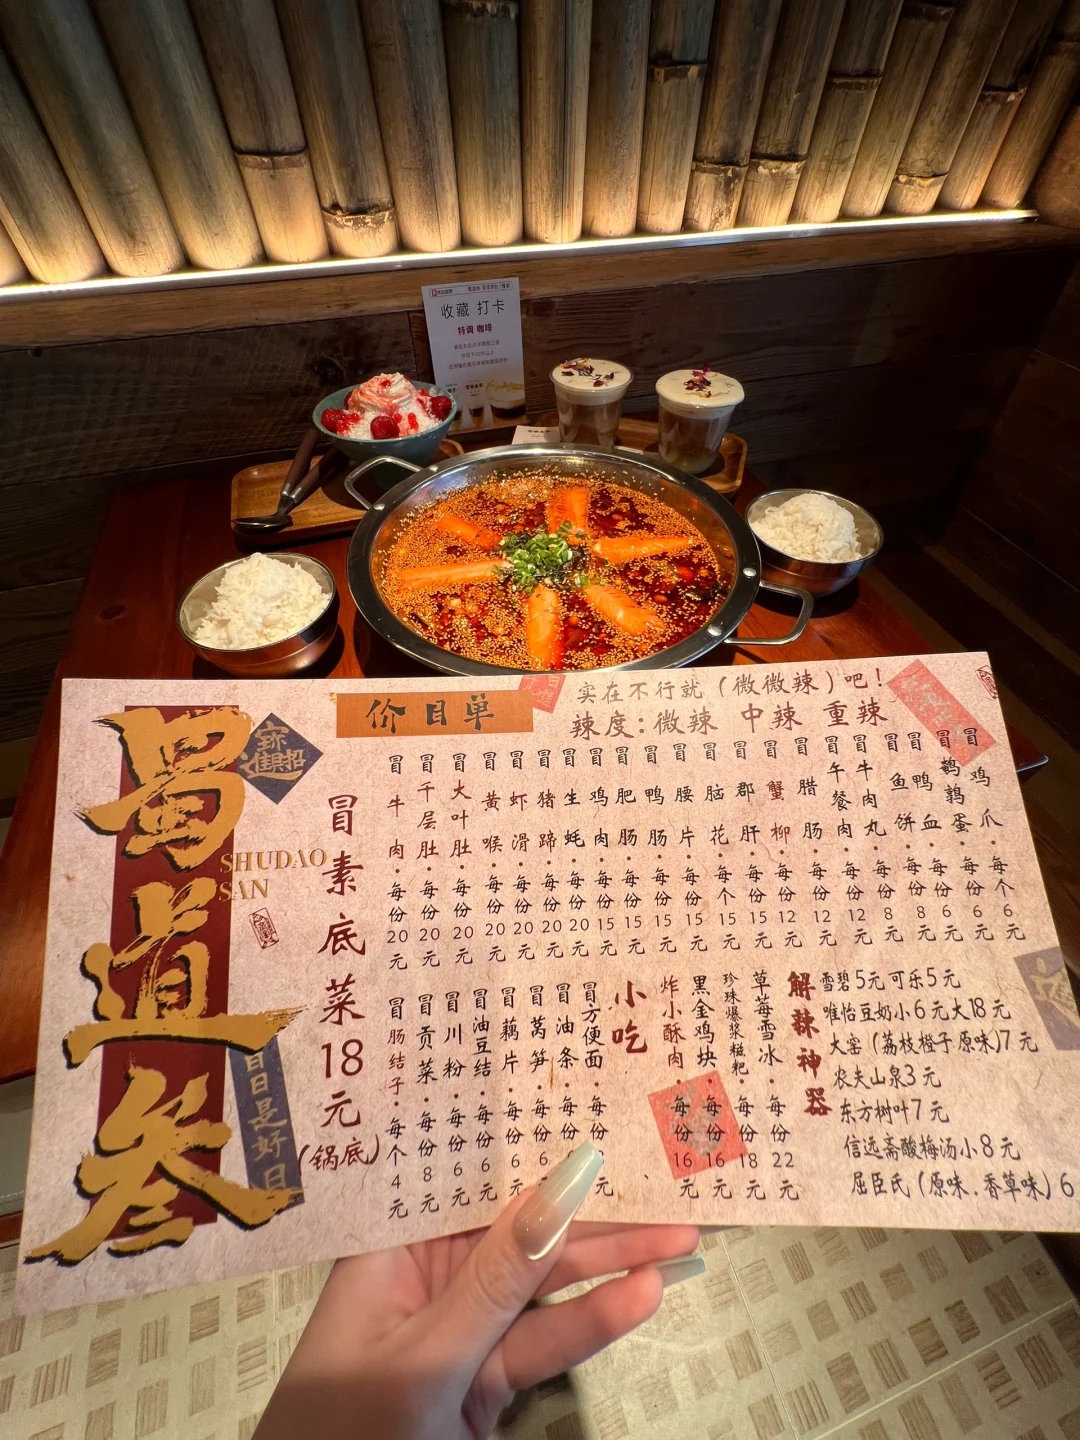 收藏 打卡
特调 咖啡
价目单
实在不行就（微微辣）吧！
辣度：微辣 中辣 重辣
蜀道叁
SHUDAO
SAN
招财进宝
日日是好日
冒素底菜18元
（锅底）
冒牛肉·每份20元
冒千层肚·每份20元
冒大叶肚·每份20元
冒黄喉·每份20元
冒虾滑·每份20元
冒猪蹄·每份20元
冒生蚝·每份20元
冒鸡肉·每份15元
冒肥肠·每份15元
冒鸭肠·每份15元
冒腰片·每份15元
冒脑花·每个15元
冒郡肝·每份15元
冒蟹柳·每份12元
冒腊肠·每份12元
冒午餐肉·每份12元
冒牛肉丸·每份8元
冒鱼饼·每份8元
冒鸭血·每份6元
冒鹌鹑蛋·每份6元
冒鸡爪·每个6元
冒肠结子·每个4元
冒贡菜·每份8元
冒川粉·每份6元
冒油豆结·每份6元
冒藕片·每份6元
冒莴笋·每份6元
冒油条·每份
冒方便面·每份 元
小吃
炸小酥肉·每份16元
黑金鸡块·每份16元
珍珠爆浆糍粑·每份18元
草莓雪冰·每份22元
解辣神器
雪碧5元 可乐5元
唯怡豆奶小6元大18元
大窑（荔枝橙子原味）7元
农夫山泉3元
东方树叶7元
信远斋酸梅汤小8元
屈臣氏（原味.香草味）6